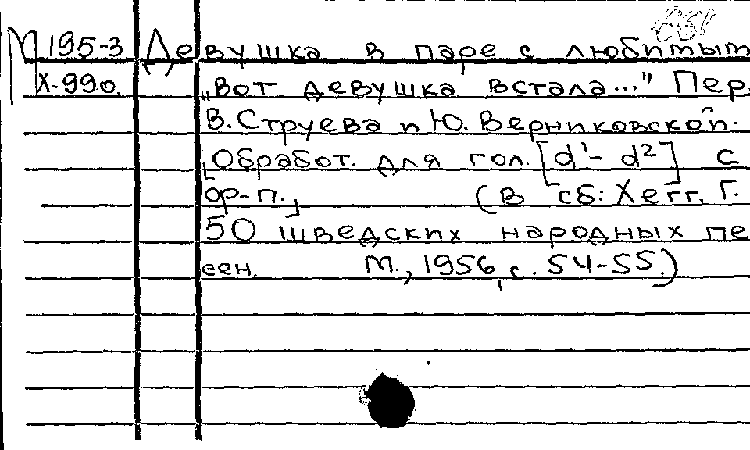 М 195-3 Девушка в паре с любимым
Х-990. „Вот девушка встала..." Пер.
В. Струева и Ю. Верниковской.
[Обработ. для гол. [d¹- d²] с
фр-п.] (В сб: Хегг, Г.
50 шведских народных пе
сен. М., 1956, с. 54-55.)